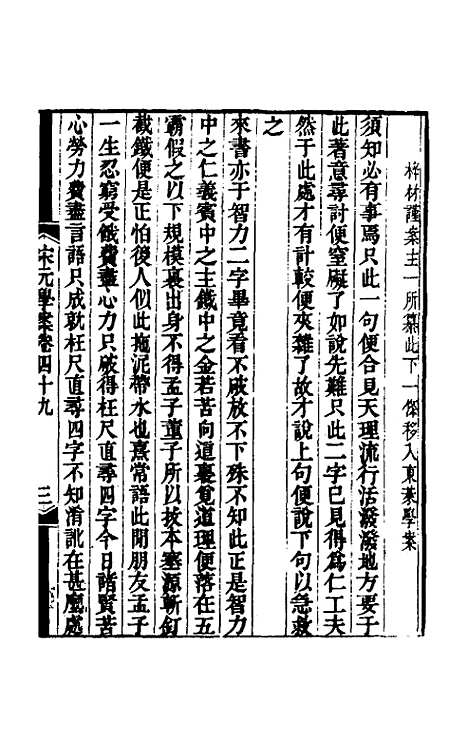 梓材謹案主一所纂此下一條移入東萊學案
須知必有事焉只此一句便合見天理流行活潑潑地方要于
此著意尋討便窒礙了如說先難只此二字已見得為仁工夫
然于此處才有計較便夾雜了故才說上句便說下句以急救
之
來書亦于智力二字畢竟看不破放不下殊不知此正是智力
中之仁義賓中之主鐵中之金若苦向這裏覓道理便落在五
霸假之以下規模裏出身不得孟子董子所以拔本塞源斬釘
截鐵便是正怕後人似此拖泥帶水也熹常語此閒朋友孟子
一生忍窮受餓費盡心力只破得枉尺直尋四字今日諸賢苦
心勞力費盡言語只成就枉尺直尋四字不知淆訛在甚麼處
宋元學案卷四十九
三